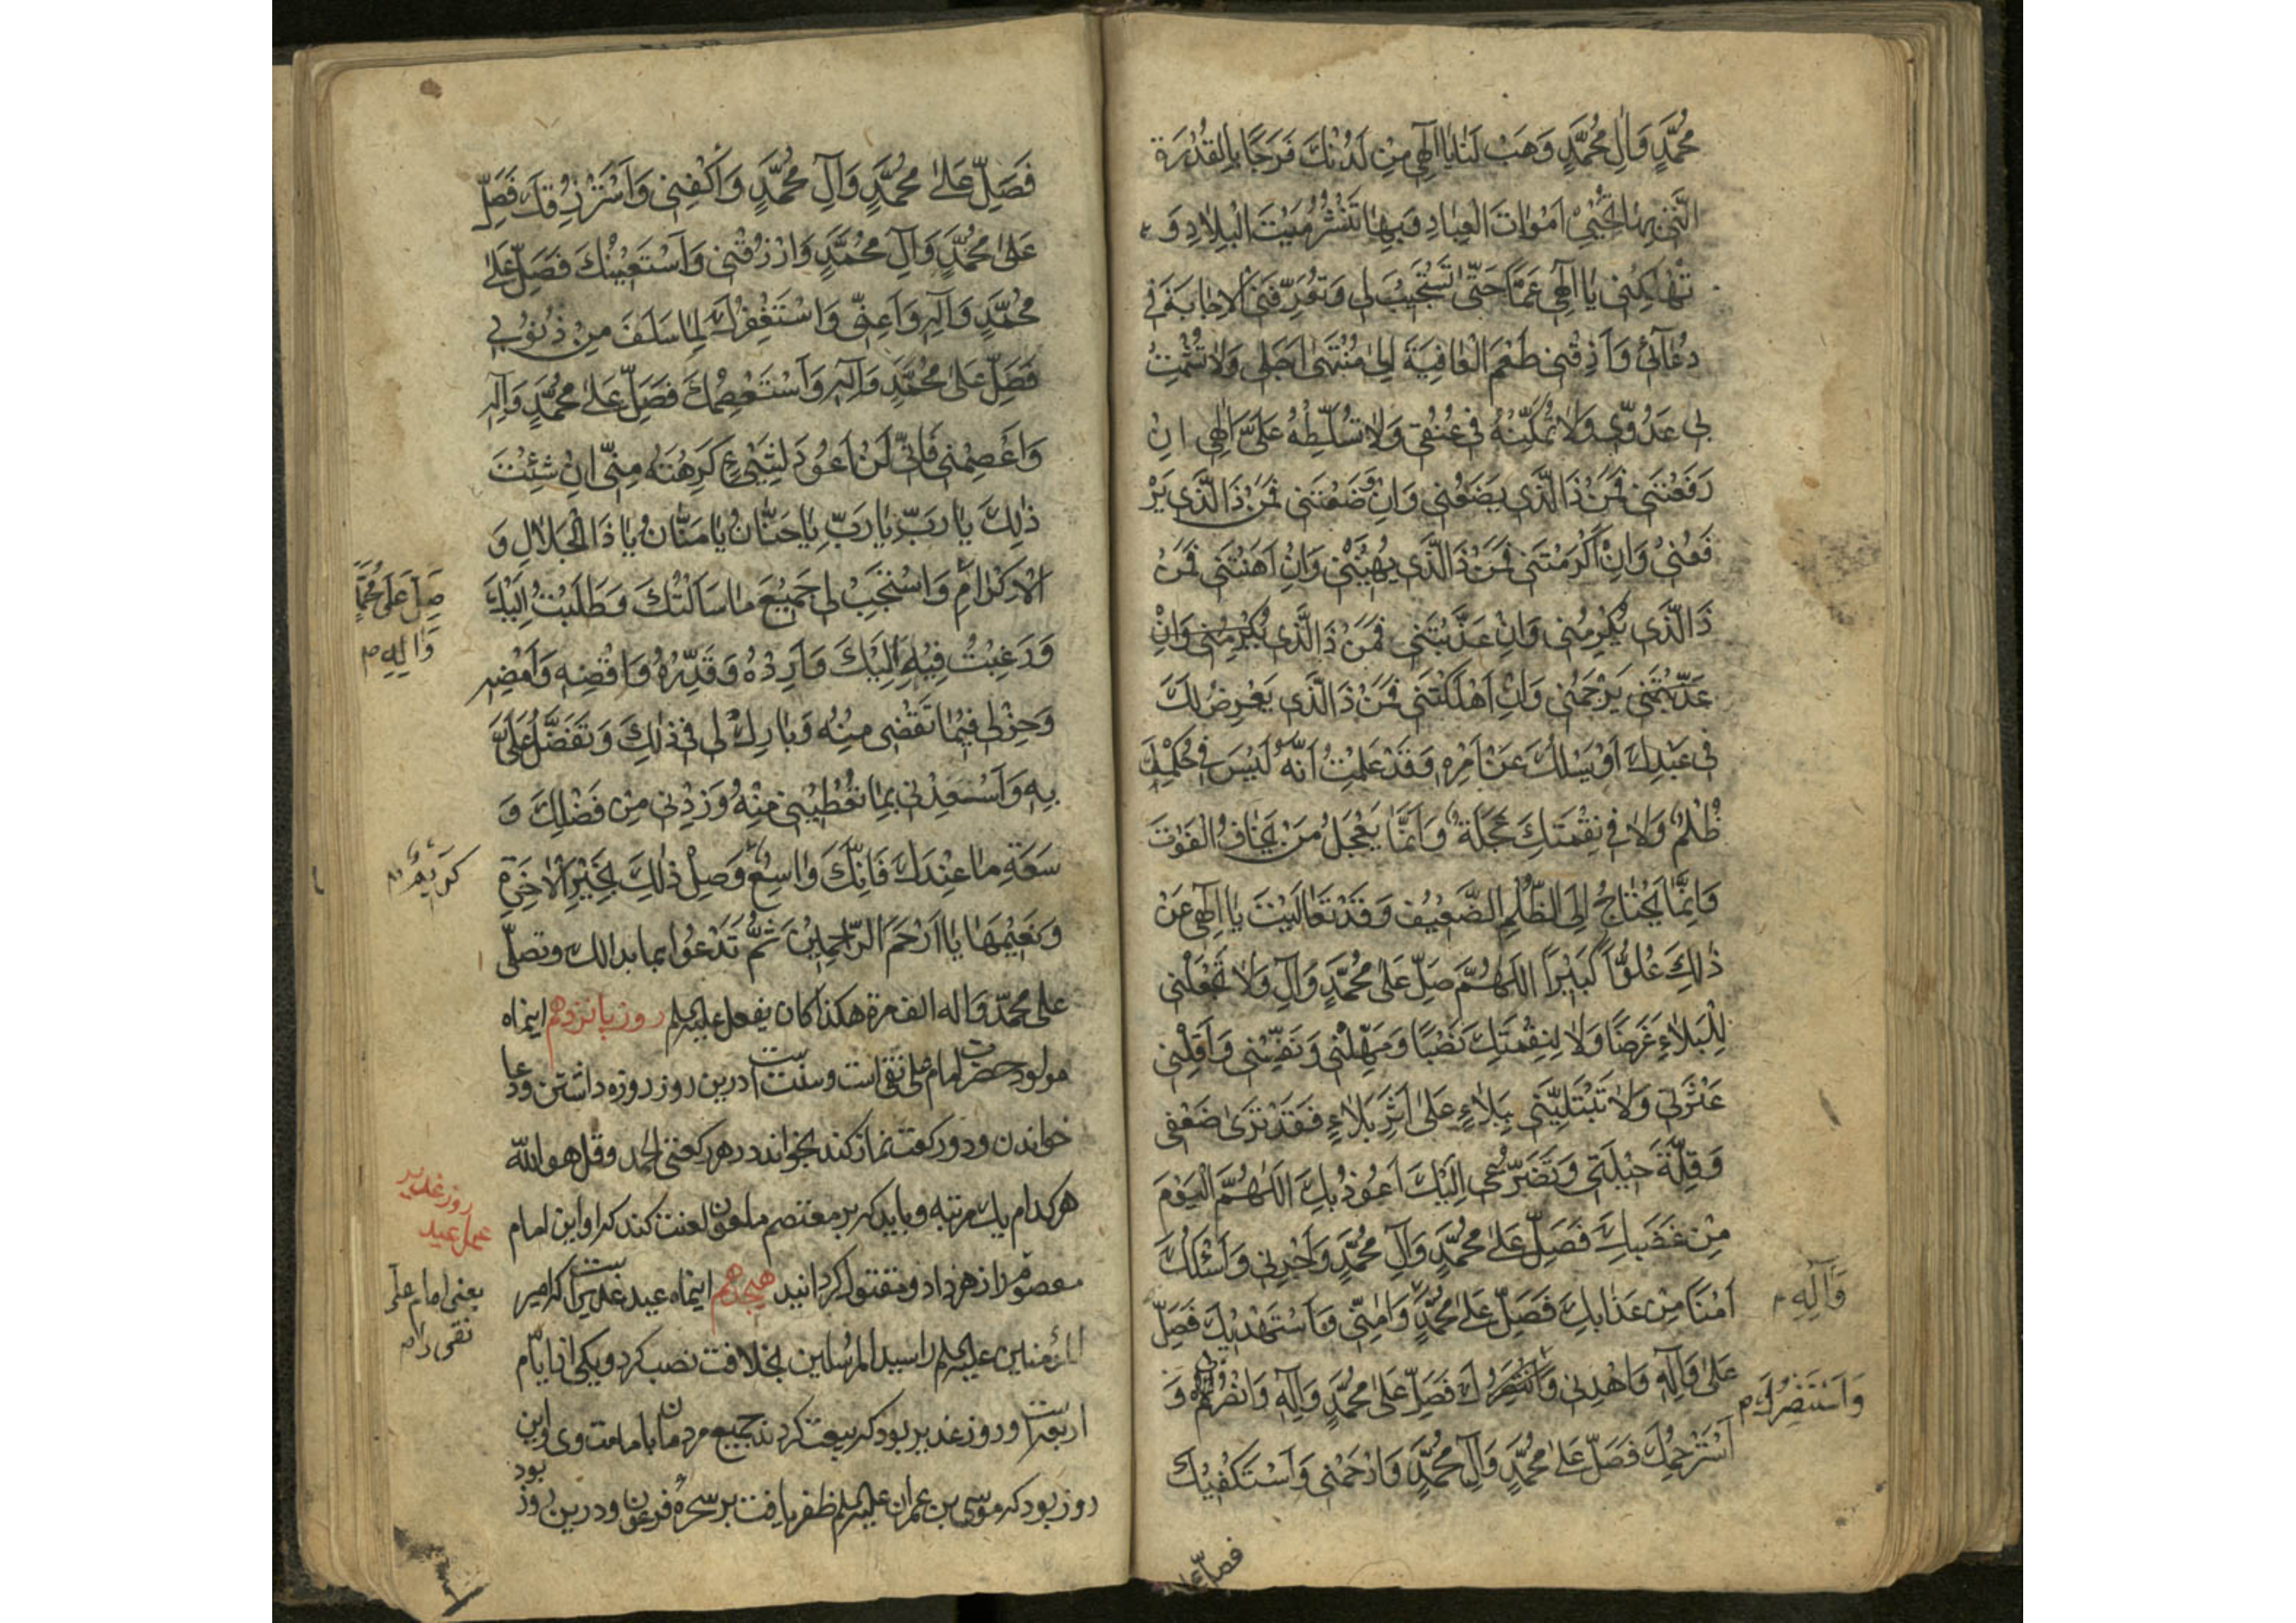 مُحَمَّدٍ وَالِ مُحَمَّدٍ وَهَبْ لَنا يا اِلٰهي مِنْ لَدُنْكَ فَرَجًا بِالْقُدْرَةِ
الَّتي بِهَا تُحْيِيْ اَمْوٰاتَ الْعِبادِ وَبِهَا تَنْشُرُ مَيْتَ الْبِلاٰدِ وَ
تُهْلِكْني يٰا اِلٰهي غَمًّا حَتّٰى تَسْتَجيبَ لي وَتُعَرِّفَنَي الْاِجابَةَ في
دُعٰآئي وَاَذِقْني طَعْمَ الْعٰافِيَةِ اِلىٰ مُنْتَهىٰ اَجَلي وَلاٰ تُشْمِتْ
بي عَدُوّي وَلاٰ تُمَكِّنْهُ في عُنُقي وَلاٰ تُسَلِّطْهُ عَلَيَّ اِلٰهي اِنْ
رَفَعْتَني فَمَنْ ذَا الَّذي يَضَعُني وَاِنْ وَضَعْتَني فَمَنْ ذَا الَّذي يَرْ
فَعُني وَاِنْ اَكْرَمْتَني فَمَنْ ذَا الَّذي يُهينُني وَاِنْ اَهَنْتَني فَمَنْ
ذَا الَّذي يُكْرِمُني وَاِنْ عَذَّبْتَني فَمَنْ ذَا الَّذي يُكْرِمُني وَاِنْ
عَذَّبْتَني يَرْحَمُني وَاِنْ اَهْلَكْتَني فَمَنْ ذَا الَّذي يَعْرِضُ لَكَ
في عَبْدِكَ اَوْ يَسْئَلُكَ عَنْ اَمْرِهِ وَقَدْ عَلِمْتُ اَنَّهُ لَيْسَ في حُكْمِكَ
ظُلْمٌ وَلاٰ في نِقْمَتِكَ عَجَلَةٌ وَاِنَّمٰا يَعْجَلُ مَنْ يَخٰافُ الْفَوْتَ
وَاِنَّمٰا يَحْتٰاجُ اِلَى الظُّلْمِ الضَّعيفُ وَقَدْ تَعٰالَيْتَ يٰا اِلٰهي عَنْ
ذٰلِكَ عُلُوًّا كَبيرًا اَللّٰهُمَّ صَلِّ عَلىٰ مُحَمَّدٍ وَآلِ وَلاٰ تَجْعَلْني
لِلْبَلاٰءِ غَرَضًا وَلاٰ لِنِقْمَتِكَ نَصْبًا وَمَهِّلْني وَنَفِّسْني وَاَقِلْني
عَثْرَتي وَلاٰ تَبْتَلِيَنّي بِبَلاٰءٍ عَلىٰ اَثَرِ بَلاٰءٍ فَقَدْ تَرىٰ ضَعْفي
وَقِلَّةَ حيلَتي وَتَضَرُّعي اِلَيْكَ اَعُوذُ بِكَ اَللّٰهُمَّ الْيَوْمَ
مِنْ غَضَبِكَ فَصَلِّ عَلىٰ مُحَمَّدٍ وَآلِ مُحَمَّدٍ وَاَجِرْني وَاَسْئَلُكَ
اَمْنًا مِنْ عَذٰابِكَ فَصَلِّ عَلىٰ مُحَمَّدٍ وَآمِنّي وَاَسْتَهْديكَ فَصَلِّ
وَآلِهِ م
عَلىٰ وَآلِهِ وَاهْدِني فَصَلِّ عَلىٰ مُحَمَّدٍ وَآلِهِ وَانْصُرْني وَ
وَاَسْتَنْصِرُكَ م
اَسْتَرْحِمُكَ فَصَلِّ عَلىٰ مُحَمَّدٍ وَآلِ مُحَمَّدٍ وَارْحَمْني وَاَسْتَكْفيكَ
فصلّ علی
فَصَلِّ عَلىٰ مُحَمَّدٍ وَآلِ مُحَمَّدٍ وَاَكْفِني وَاَسْتَرْزِقُكَ فَصَلِّ
عَلىٰ مُحَمَّدٍ وَآلِ مُحَمَّدٍ وَارْزُقْني وَاَسْتَعينُكَ فَصَلِّ عَلىٰ
مُحَمَّدٍ وَآلِهِ وَاَعِنّي وَاَسْتَغْفِرُكَ لِمٰا سَلَفَ مِنْ ذُنُوبي
فَصَلِّ عَلىٰ مُحَمَّدٍ وَآلِهِ وَاَسْتَعْصِمُكَ فَصَلِّ عَلىٰ مُحَمَّدٍ وَآلِهِ
وَاَعْصِمْني فَاِنّي لَنْ اَعُودَ لِشَيْءٍ كَرِهْتَهُ مِنّي اِنْ شِئْتَ
ذٰلِكَ يٰا رَبِّ يٰا رَبِّ يٰا حَنّٰانُ يٰا مَنّٰانُ يٰا ذَا الْجَلاٰلِ وَ
الْاِكْرٰامِ وَاسْتَجِبْ لي جَميعَ مٰا سَاَلْتُكَ وَطَلَبْتُ اِلَيْكَ
صَلِّ عَلىٰ مُحَمَّدٍ
وَآلِهِ م
وَرَغِبْتُ فيهِ اِلَيْكَ وَاَرِدْهُ وَقَدِّرْهُ وَاقْضِهِ وَاَمْضِهِ
وَخِرْ لي فيمٰا تَقْضي مِنْهُ وَبٰارِكْ لي في ذٰلِكَ وَتَفَضَّلْ عَلَيَّ
بِهِ وَاَسْعِدْني بِمٰا تُعْطيني مِنْهُ وَزِدْني مِنْ فَضْلِكَ وَ
سَعَةِ مٰا عِنْدَكَ فَاِنَّكَ وٰاسِعٌ وَصِلْ ذٰلِكَ بِخَيْرِ الْاٰخِرَةِ
كَريمٌ م
وَنَعيمِهٰا يٰا اَرْحَمَ الرّٰاحِمينَ ثُمَّ تَدْعُوا بما بدالك وتصلّي
على محمّد وَاله الف مرة هكذا كان يفعل عليه السلم روز پانزدهم اینماه
مولود حضرت امام علی نقی است و سنّت است درین روز روزه داشتن و دعا
خواندن و دو ركعت نماز كند بخواند در هر ركعتی الحمد وقل هو الله
هر كدام يك مرتبه و بايد كه بر معتصم ملعون لعنت كند كه او اين امام
روز غدیر
عمل عید
معصوم را زهر داد و مقتول كردانيد هيجدهم اينماه عيد غدير است كه امير
یعنی امام علی
نقی را م
المؤمنين عليه السلم را سيد المرسلين بخلافت نصب كرد و يكى از ايّام
اربعه است و روز غدير بود كه بيعت كردند جميع مردمان با مامت وی و این
روز بود كه موسى بن عمران عليه السلم ظفر يافت بر سحرۀ فرعون و درين روز بود